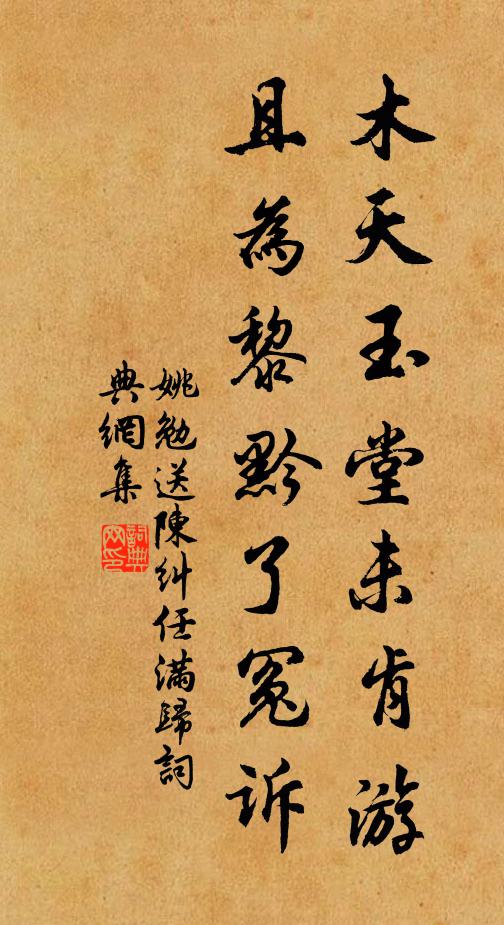 木天玉堂未肯游
且為黎黔了冤訴
姚勉送陳糾任滿歸詞
典網集
詞典
网印